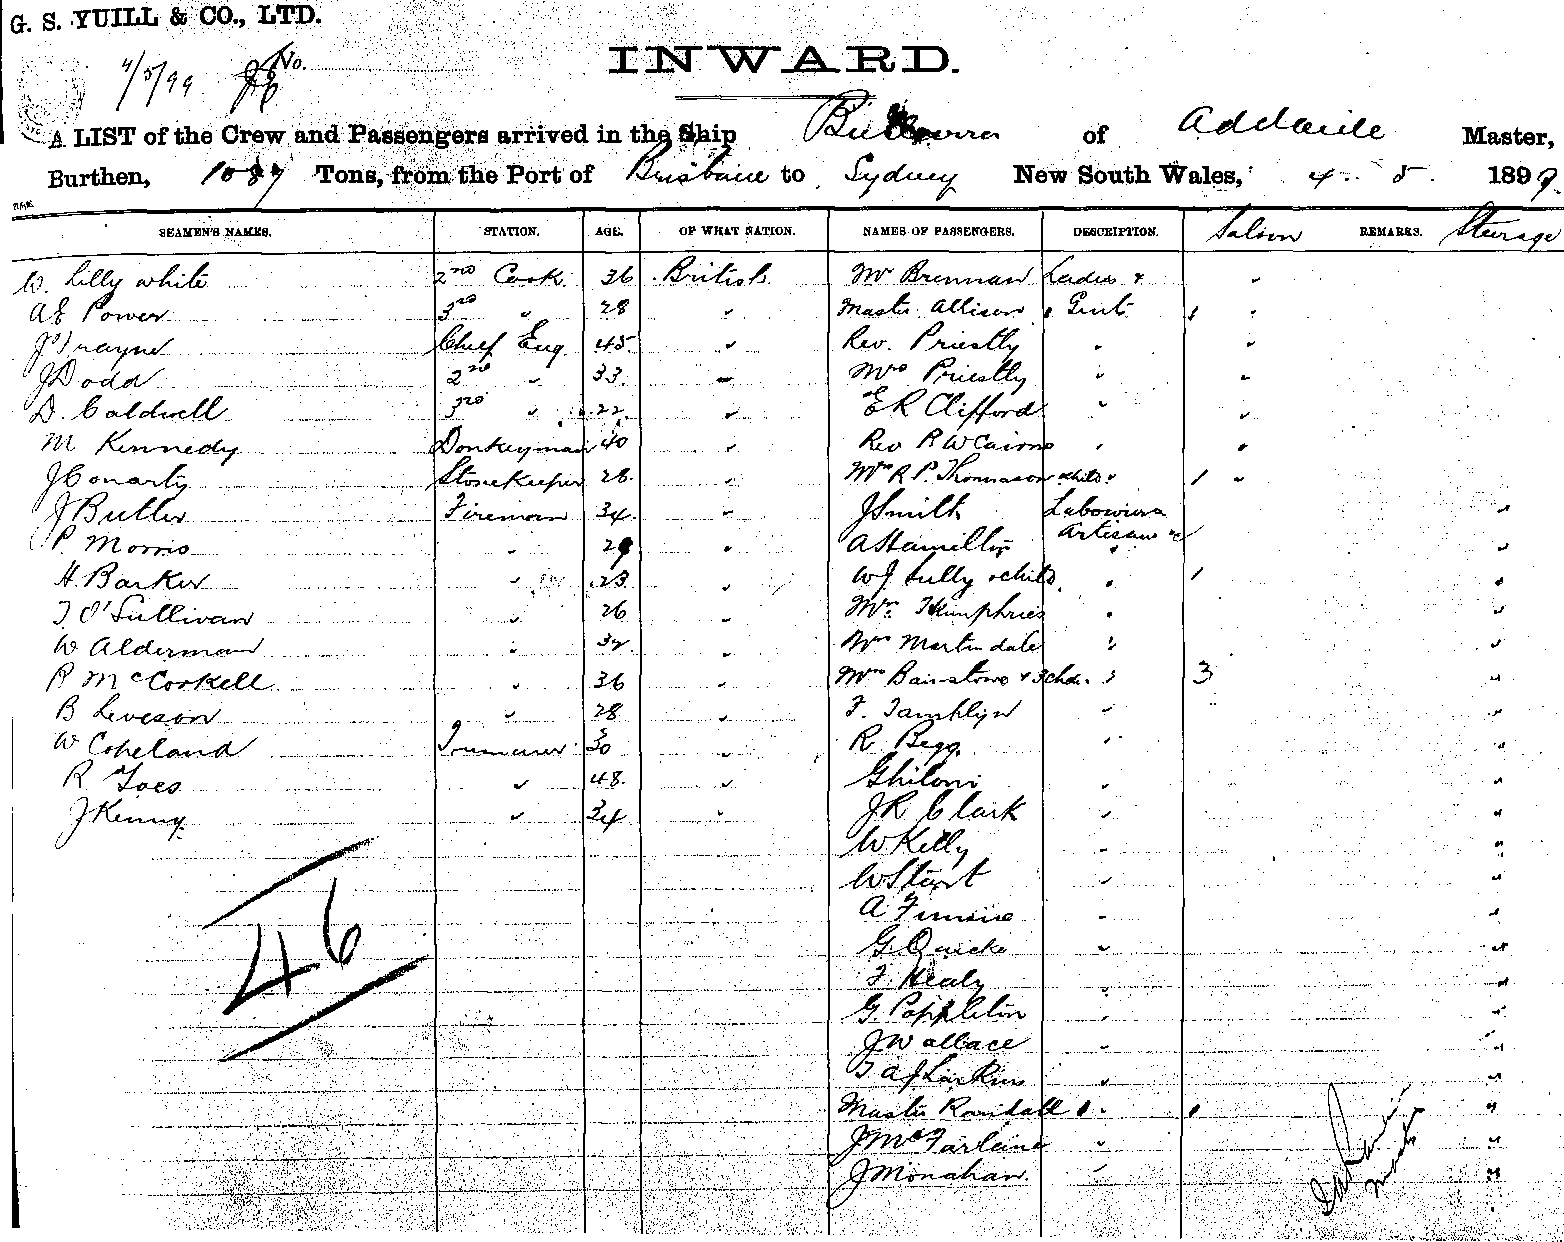 G. S. YUILL & CO., LTD.
4/5/99 No.
INWARD.
A LIST of the Crew and Passengers arrived in the Ship of Addlaide Master,
Burthen, 1087 Tons, from the Port of Brisbane to Sydney New South Wales, 4. 5. 1899.
SEAMEN'S NAMES. STATION. AGE. OF WHAT NATION. NAMES OF PASSENGERS. DESCRIPTION. Saloon REMARKS. Steerage
W. Lilly white 2nd Cook 36 British Mr Brennan Ladies & "
AE Power 3rd " 28 " Master Allison " Gent. 1 "
J Trayne Chief Eng. 45 " Rev. Priestly " "
J Dodd 2nd " 33 " Mrs Priestly " "
D. Caldwell 3rd " 22 " E R Clifford " "
M Kennedy Donkeyman 40 " Rev R W Cairns " "
J Conarty Storekeeper 28 " Mrs R P. Thomason child " 1 "
J Butler Fireman 34 " J Smith Labourers "
P. Morris " 29 " A Hamilton Artisans &c "
H Barker " 23 " W J Lully & child " 1 "
T O'Sullivan " 26 " Mrs Humphries " "
W Alderman " 32 " Mrs Martindale " "
R McCorkell " 36 " Mrs Bairstowe & 3 chdn " 3 "
B Leveson " 28 " F. Tamblyn " "
W Copeland Trimmer 30 " R Begg " "
R Toes " 48 " Ghiloni " "
J Kenny " 34 " J R Clark " "
W Kelly " "
W Sturt " "
A "
46
G. Quick " "
F. Healy " "
G. Poppleton " "
J Wallace " "
T A J Larkins " "
Master Randall " 1 "
J McFarlane " "
J Monahan " "